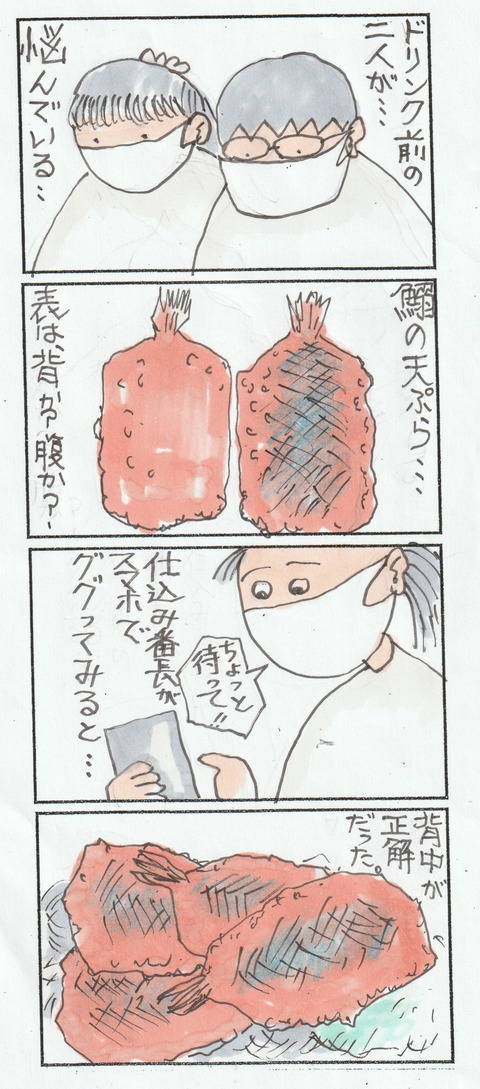 ドリンク前の
二人が…
悩んでいる…
鰯の天ぷら…
表は、背か?腹か?
ちょっと
待って!!
仕込み番長が
スマホで
ググってみると…
背中が
正解
だった。